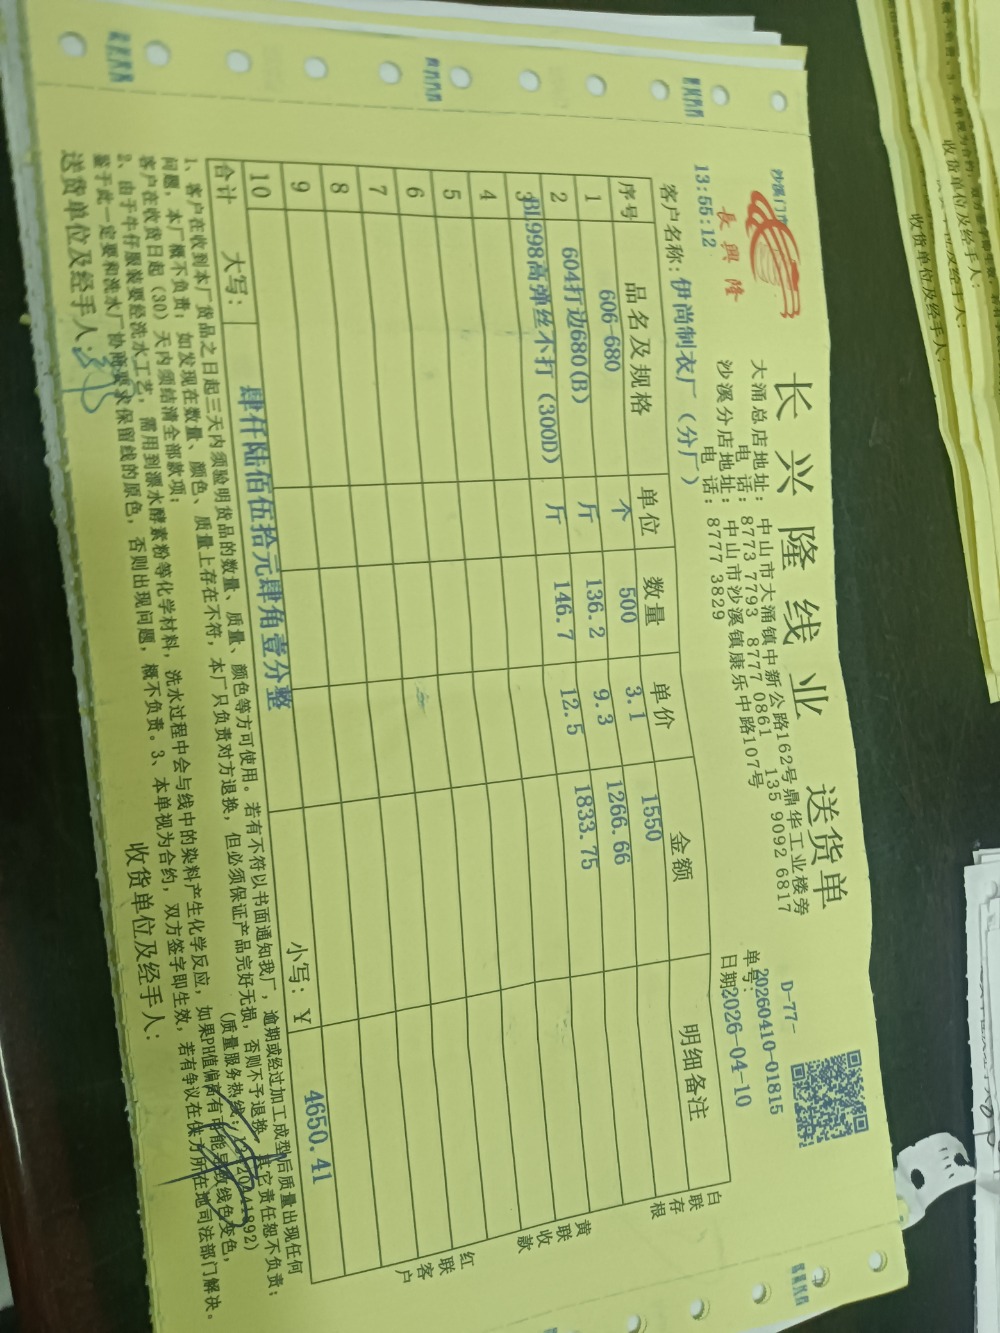 长兴隆线业 送货单
沙溪门
長興隆
大涌总店地址：中山市大涌镇中新公路162号鼎华工业楼旁
电 话：8773 7793 8777 0861 135 9092 6817
沙溪分店地址：中山市沙溪镇康乐中路107号
电 话：8777 3829
D-77-
单号：20260410-01815
日期2026-04-10
13:55:12
客户名称：伊尚制衣厂（分厂）
序号 品名及规格 单位 数量 单价 金额 明细备注
1 606-680 个 500 3.1 1550
2 604打边680(B) 斤 136.2 9.3 1266.66
3 BL998高弹丝不打（300D） 斤 146.7 12.5 1833.75
4
5
6
7
8
9
10
合计 大写： 肆仟陆佰伍拾元肆角壹分整 小写：Y 4650.41
白联存根
黄联收款
红联客户
1、客户在收到本厂货品之日起三天内须验明货品的数量、质量、颜色等方可使用。若有不符以书面通知我厂，逾期或经过加工成型后质量出现任何
问题，本厂概不负责；如发现在数量、颜色、质量上存在不符，本厂只负责对方退换，但必须保证产品完好无损，否则不予退换，其它责任恕不负责；
客户在收货日起（30）天内须结清全部款项；（质量服务热线：
2、由于牛仔服装要经洗水工艺，需用到漂水酵素粉等化学材料，洗水过程中会与线中的染料产生化学反应，如果PH值偏高有可能导致线色变色，
鉴于此一定要和洗水厂协商要求保留线的原色，否则出现问题，概不负责。3、本单视为合约，双方签字即生效，若有争议在供方所在地司法部门解决。
送货单位及经手人： 收货单位及经手人：
收货单位及经手人：
收货单位及经手人：